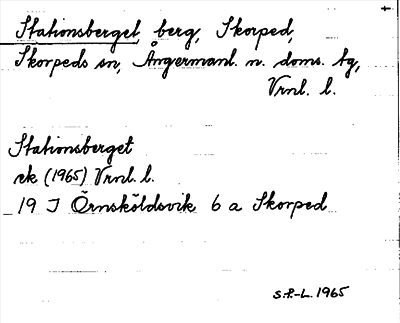 Stationsberget, berg, Skorped,
Skorpeds sn, Ångermanl. n. doms. tg,
Vrnl. l.
Stationsberget
ek (1965) Vrnl. l.
19 J Örnsköldsvik 6 a Skorped
S.P.-L. 1965